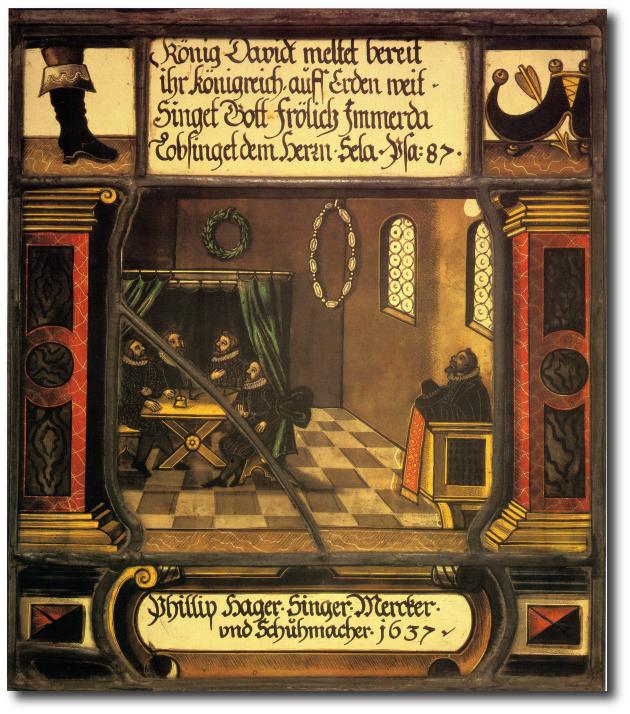 König Davidt meltet bereit
ihr königreich auff Erden weit ·
Singet Gott frölich Immerda
Lobsinget dem Herrn · Sela · Psa: 87 ·
Phillip Hager · Singer · Mercker ·
vnd Schůhmacher · 1637 ·